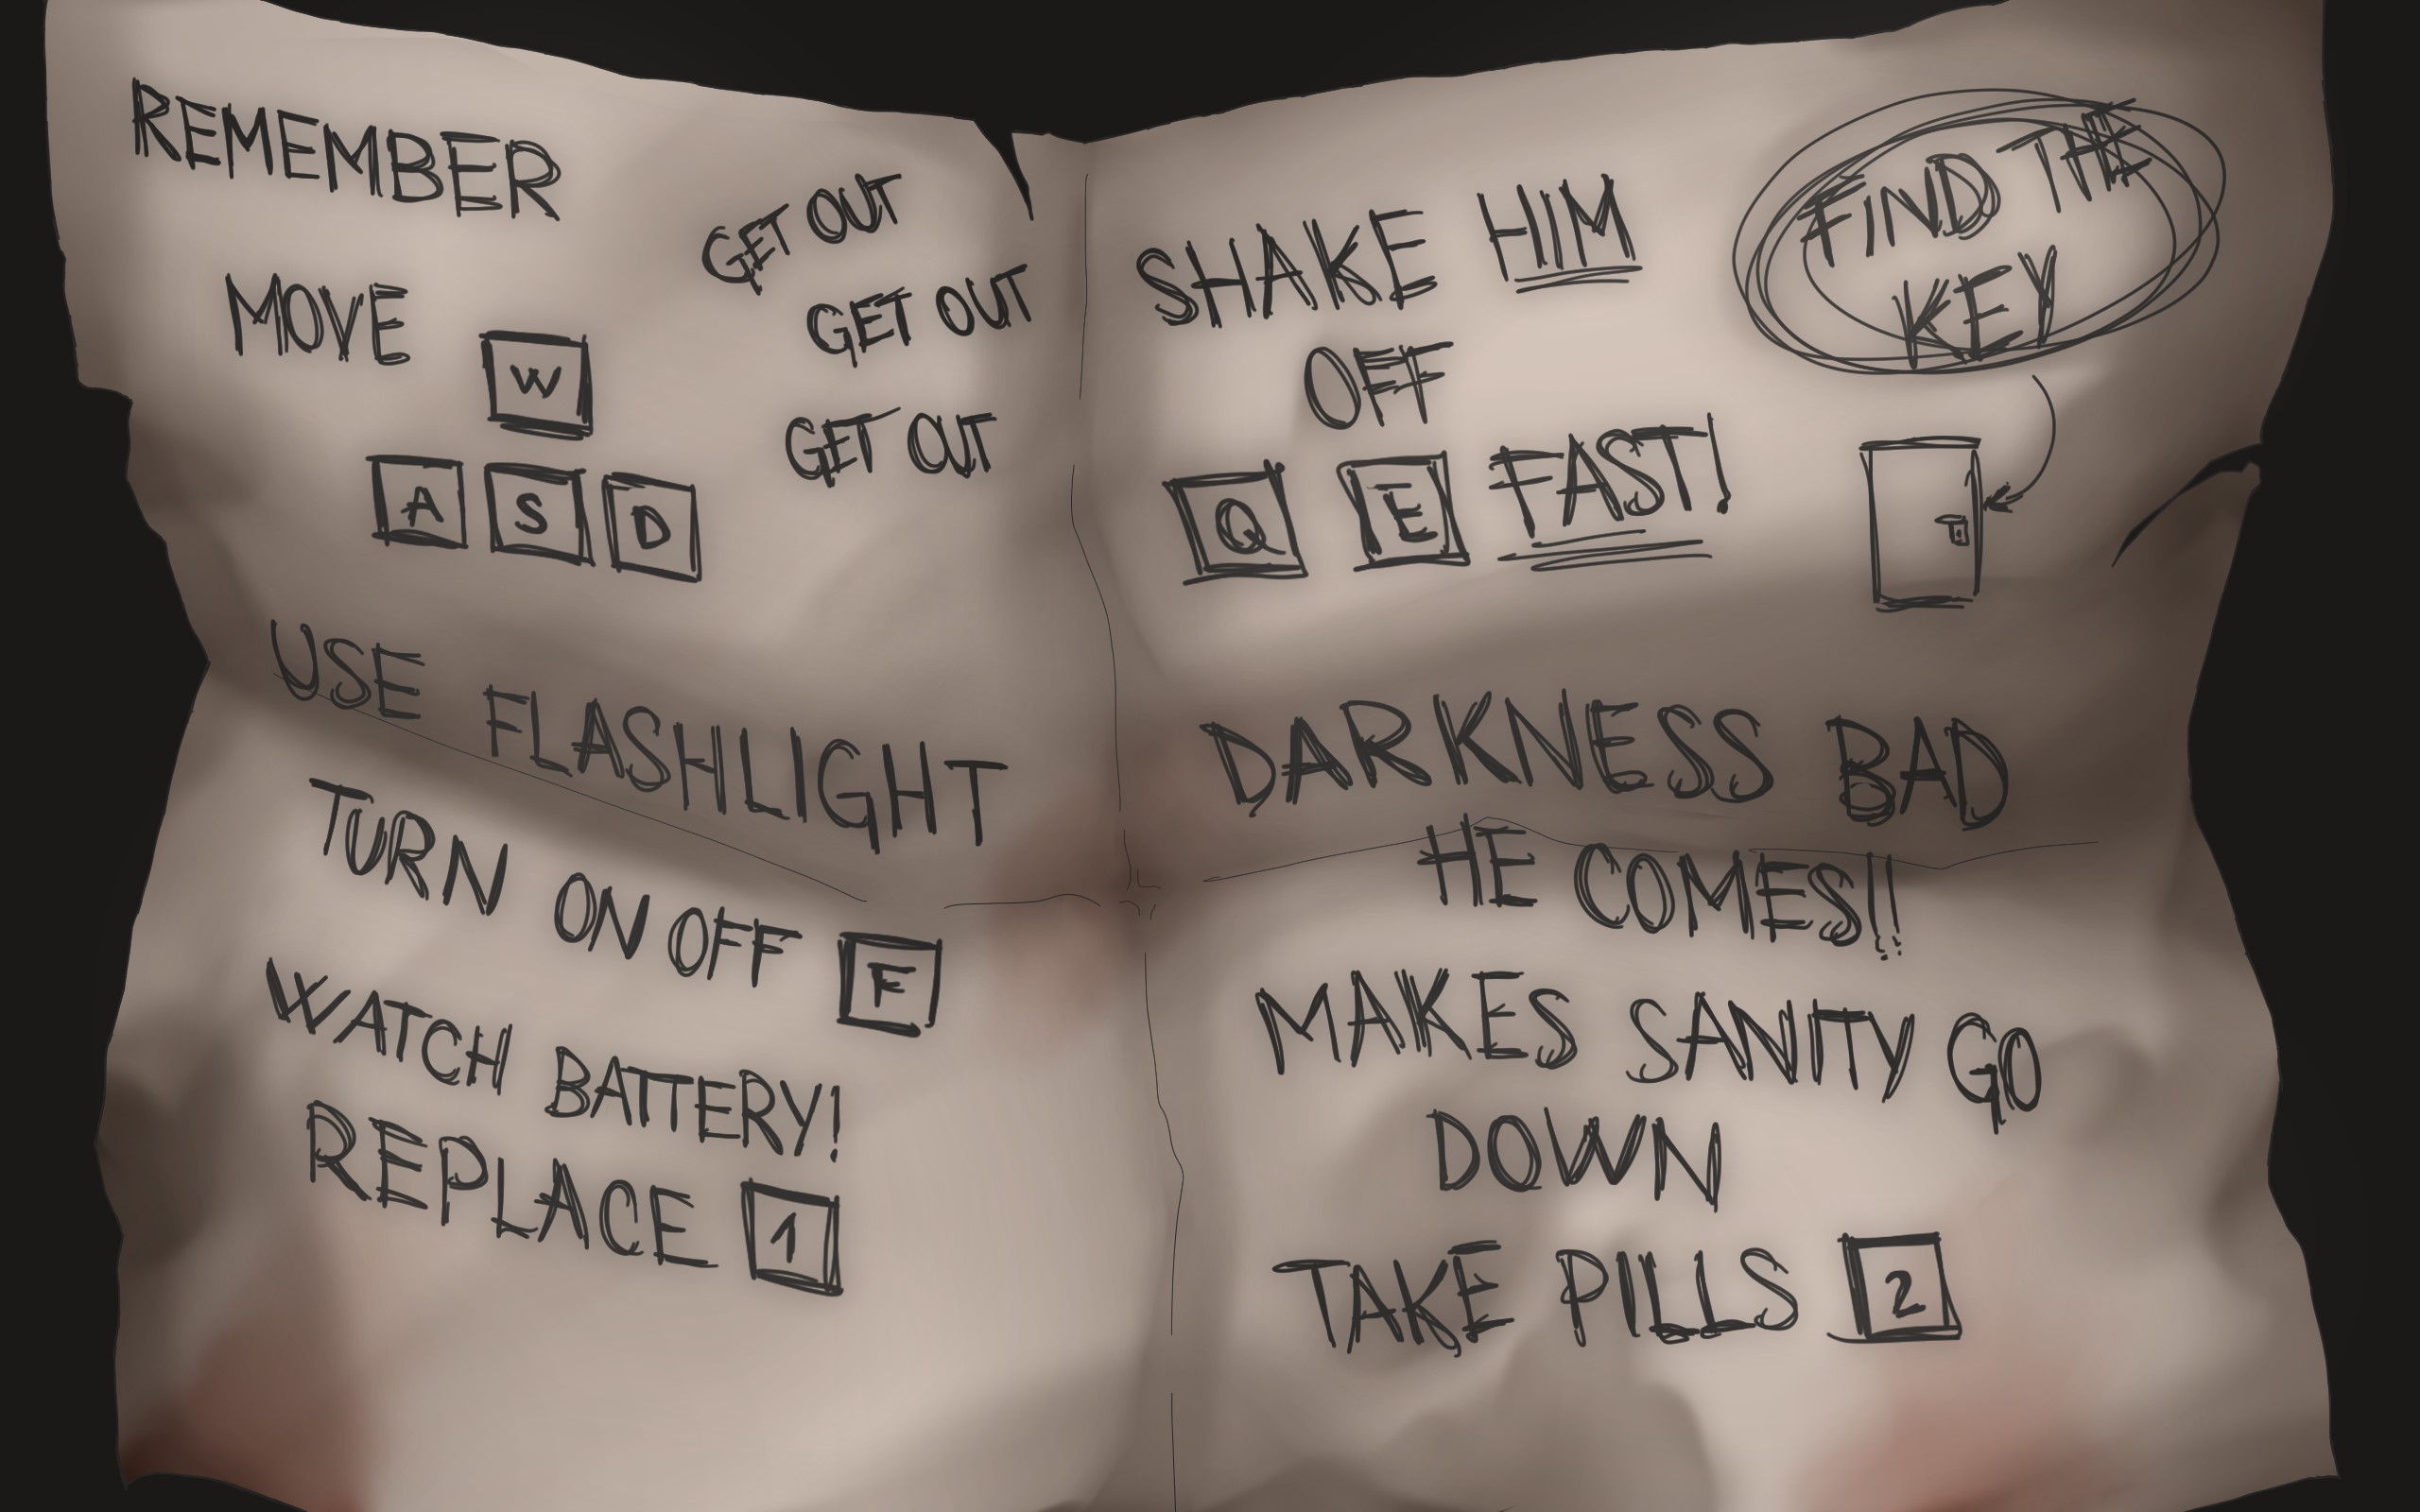 REMEMBER
MOVE
W
A S D
GET OUT
GET OUT
GET OUT
USE FLASHLIGHT
TURN ON OFF F
WATCH BATTERY!
REPLACE 1
SHAKE HIM
OFF
Q E FAST!
FIND THE
KEY
DARKNESS BAD
HE COMES!!
MAKES SANITY GO
DOWN
TAKE PILLS 2